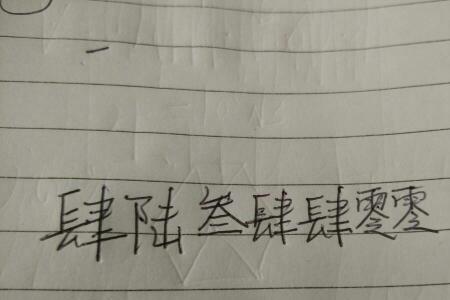 肆陆叁肆肆零零